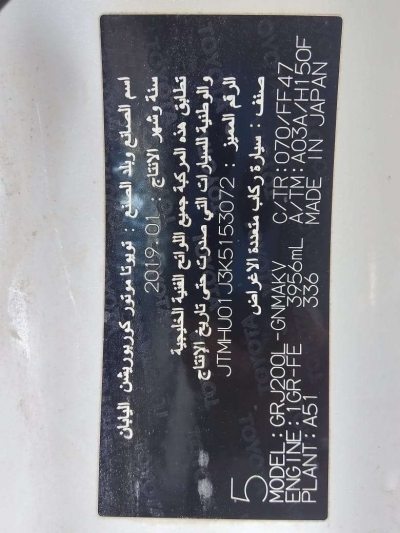 اسم الصانع وبلد الصنع : تويوتا موتور كوربوريشن اليابان
سنة وشهر الانتاج : 2019.01
تطابق هذه المركبة جميع اللوائح الفنية الخليجية
والوطنية للسيارات التي صدرت حتى تاريخ الانتاج
الرقم المميز : JTMHU01J3K5153072
صنف : سيارة ركاب متعددة الاغراض
5
MODEL:GRJ200L-GNMAKV C/TR:070/FF47
ENGINE:1GR-FE 3956mL A/TM:A03A/H150F
PLANT:A51 336 MADE IN JAPAN